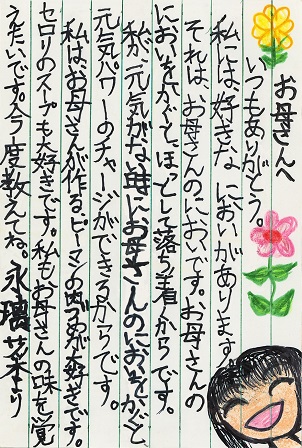 お母さんへ
いつもありがとう。
私には、好きな においがあります。
それは、お母さんのにおいです。お母さんの
においをかぐと、ほっとして落ち着くからです。
私が、元気がない時にお母さんのにおいをかぐと
元気パワーのチャージができるからです。
私は、お母さんが作る、ピーマンの肉づめが大好きです。
セロリのスープも大好きです。私もお母さんの味を覚
えたいです。今度教えてね。永璃
より